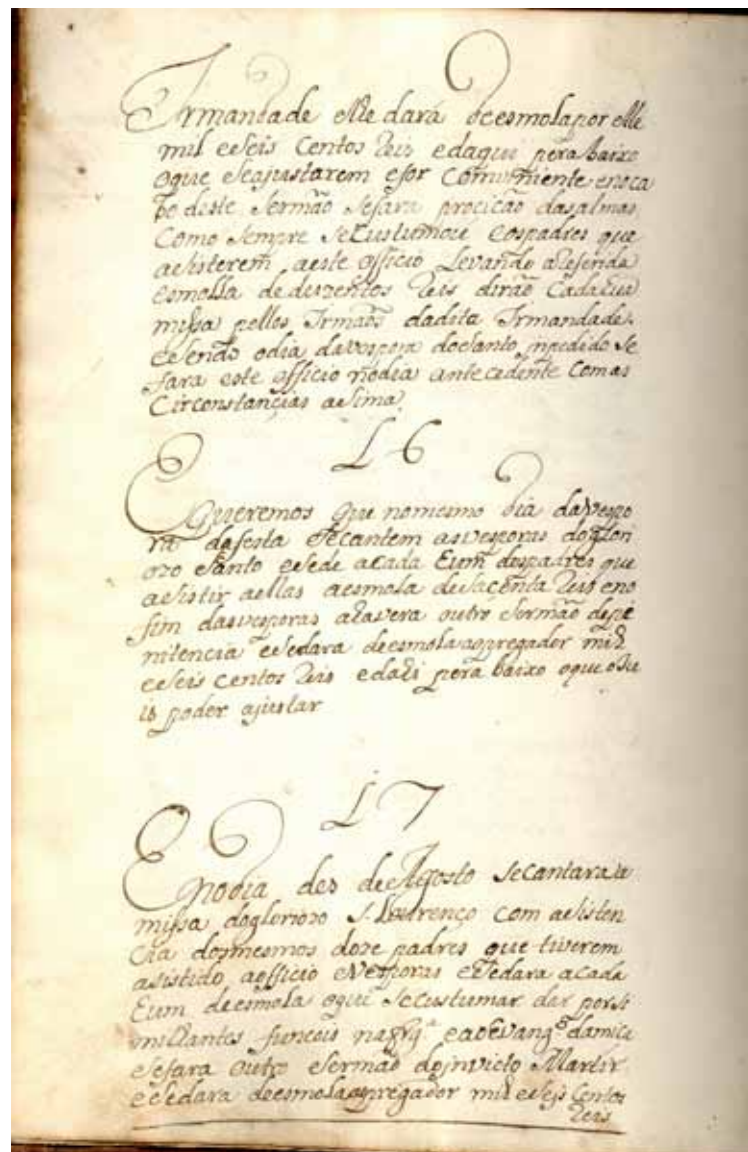 Irmandade e lhe dará de esmola por elle
mil e seis Centos Reis e daqui pera baixo
o que se ajustarem e for Comveniente e no ca
bo deste Sermão se fara procicão das almas
Como sempre se Custumou e os padres que
asisterem a este officio Levando a referida
esmolla de duzentos Reis dirão Cada hua
missa pellos Irmãos da dita Irmandade.
e sendo o dia da vespora do Santo inpedido se
fara este officio no dia antecedente Com as
Circonstancias asima
16
Queremos que no mesmo dia da Vespo
ra da festa se cantem as vesporas do glori
ozo Santo e se de a cada hum dos padres que
asistir a ellas a esmola de sacenta Reis e no
fim das vesporas avera outro Sermão de pe
nitencia e se dara de esmola ao pregador mil
e seis centos Reis e dahi pera baixo o que o Ju
is poder ajustar
17
E no dia des de Agosto se cantara a
missa do gloriozo S. Lourenço com asisten
cia dos mesmos doze padres que tiverem
asistido ao officio e Vesporas e se dara a cada
hum de esmola o que se custumar dar por si
milhantes funcois na frg.ª e ao Evang.º da missa
se fara outro Sermão do invicto Martir
e se dara de esmola ao pregador mil e seis Centos
Reis